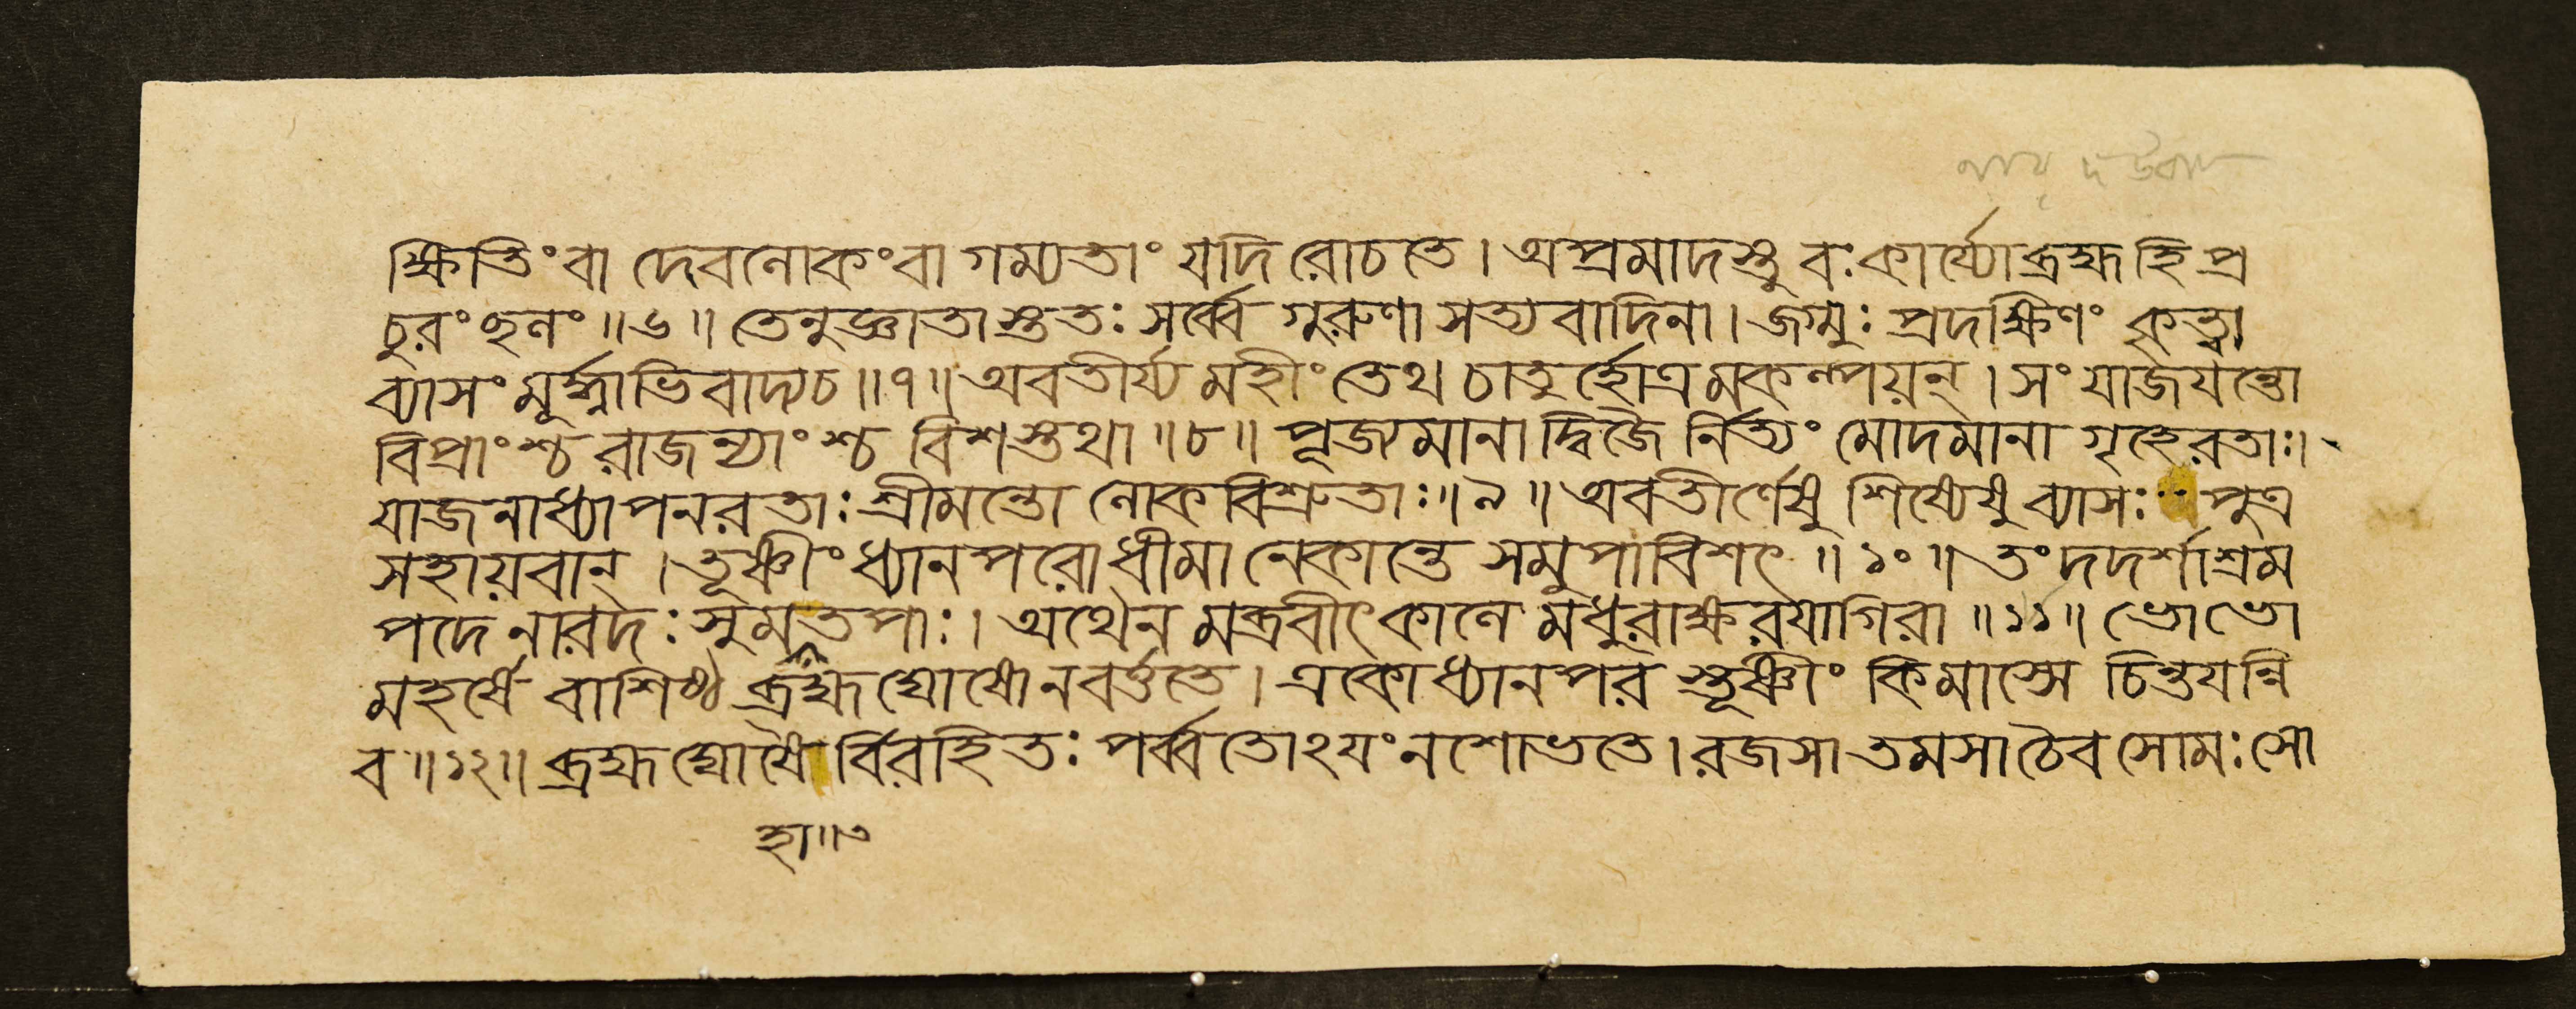 ক্ষিতিংবা দেবলোকংবা গম্যতাং যদি রোচতে। অপ্রমাদস্তু বঃ কার্য্যোব্রহ্ম হি প্র
চুরংছলং॥৬॥ তেনুজ্ঞাতাস্তুতঃ সর্ব্বে গুরুণা সত্যবাদিনা। জগ্মুঃ প্রদক্ষিণং কৃত্বা
ব্যাসং মূর্দ্ধ্নাভিবাদ্য চ॥৭॥ অবতীর্য্য মহীং তেথ চাতুর্হোত্রমকল্পয়ন্। সংযাজয়ন্তো
বিপ্রাংশ্চ রাজন্যাংশ্চ বিশস্তথা॥৮॥ পূজ্যমানা দ্বিজৈ র্নিত্যং মোদমানা গৃহেরতাঃ।
যাজনাধ্যাপনরতাঃ শ্রীমন্তো লোকবিশ্রুতাঃ॥৯॥ অবতীর্ণেষু শিষ্যেষু ব্যাসঃ পুত্র
সহায়বান্। তূষ্ণীং ধ্যানপরোধীমানেকান্তে সমুপাবিশৎ॥১০॥ তং দদর্শাশ্রম
পদে নারদঃ সুমতপাঃ। অথৈনমব্রবীৎকালে মধুরাক্ষরয়াগিরা॥১১॥ ভোভো
মহর্ষে বাশিষ্ঠ ব্রহ্মঘোষোনবর্ত্ততে। একোধ্যানপর স্তূষ্ণীং কিমাস্সে চিন্তয়ন্নি
ব॥১২॥ ব্রহ্মঘোষৈর্বিরহিতঃ পর্ব্বতোঽয়ংনশোভতে। রজসাতমসাচৈব সোমঃ সো
হা॥৩